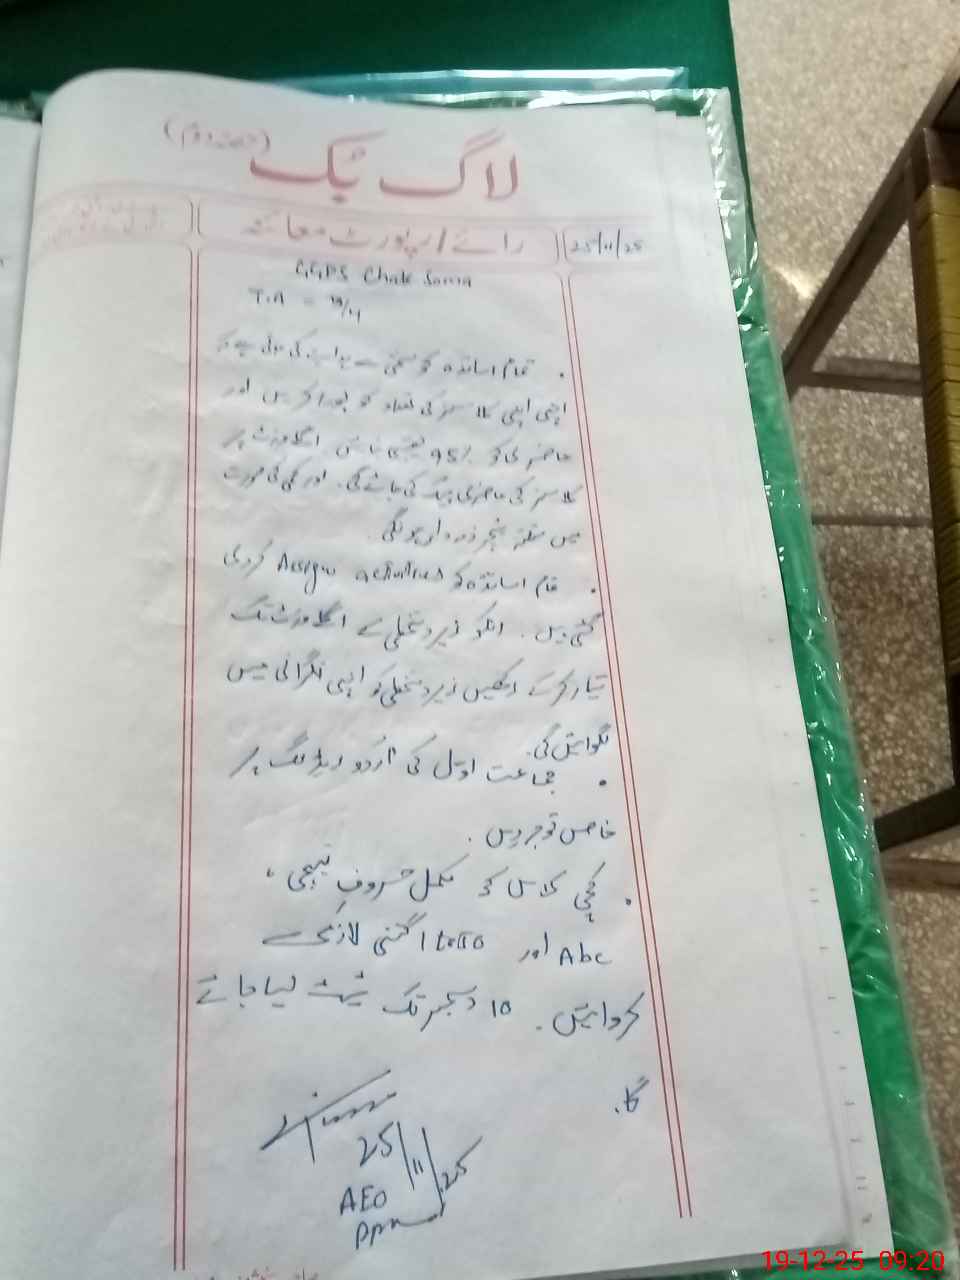 لاگ بک (حصہ دوم)
رائے / رپورٹ معائنہ
25/11/25
GGPS Chak Sama
T.A = /4
• تمام اساتذہ کو سختی سے ہدایت کی جاتی ہے کہ
اپنی اپنی کلاسز کی تعداد کو پورا کریں اور
حاضری کو 95٪ یقینی بنائیں اگلے وزٹ پر
کلاسز کی حاضری چیک کی جائے گی۔ اور کمی کی صورت
میں متعلقہ ٹیچر ذمہ دار ہونگی۔
• تمام اساتذہ کو Assign activities کر دی
گئی ہیں۔ انکو زیر دستخطی کے اگلے وزٹ تک
تیار کر کے رکھیں زیر دستخطی کو اپنی نگرانی میں
• جماعت اول کی اُردو ریڈنگ پر
خاص توجہ دیں۔
• کچی کلاس کو مکمل حروفِ تہجی،
Abc اور 1 to 50 گنتی لازمی سے
کروائیں۔ 10 دسمبر تک ٹیسٹ لیا جائے
گا۔
25/11/25
AEO
19-12-25 09:20